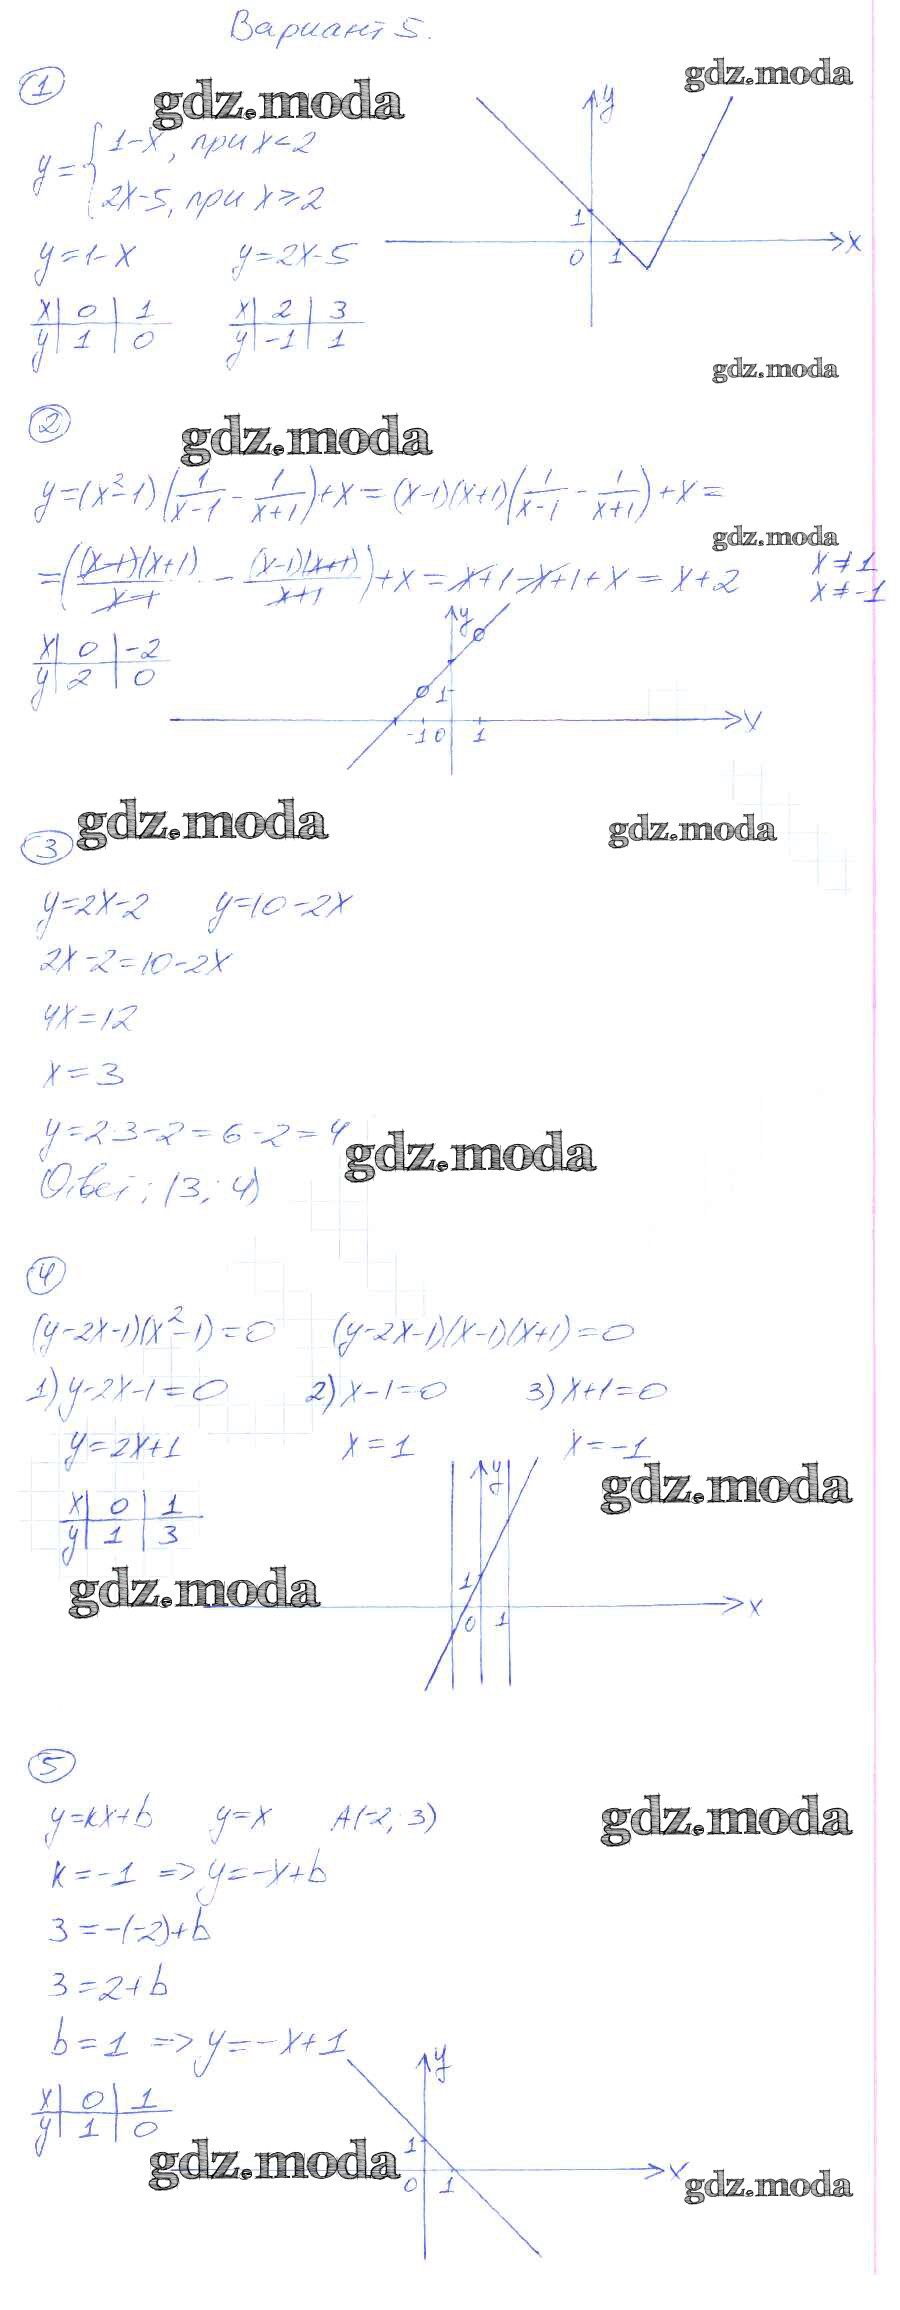 Вариант 5.
1
gdz.moda
gdz.moda
y = { 1-x, при x<2
2x-5, при x≥2
y=1-x y=2x-5
x | 0 | 1 x | 2 | 3
y | 1 | 0 y | -1 | 1
y
1
0 1 x
gdz.moda
2
gdz.moda
y=(x²-1)(1/(x-1) - 1/(x+1))+x=(x-1)(x+1)(1/(x-1) - 1/(x+1))+x=
gdz.moda
=((x-1)(x+1)/(x-1) - (x-1)(x+1)/(x+1))+x=x+1-x+1+x=x+2 x≠1
x≠-1
x | 0 | -2
y | 2 | 0
y
1
-1 0 1 x
gdz.moda
gdz.moda
3
y=2x-2 y=10-2x
2x-2=10-2x
4x=12
x=3
y=2·3-2=6-2=4
gdz.moda
Ответ: (3; 4)
4
(y-2x-1)(x²-1)=0 (y-2x-1)(x-1)(x+1)=0
1) y-2x-1=0 2) x-1=0 3) x+1=0
y=2x+1 x=1 x=-1
gdz.moda
x | 0 | 1
y | 1 | 3
y
1
0 1 x
gdz.moda
5
gdz.moda
y=kx+b y=x A(-2; 3)
k=-1 => y=-x+b
3=-(-2)+b
3=2+b
b=1 => y=-x+1
x | 0 | 1
y | 1 | 0
y
1
0 1 x
gdz.moda
gdz.moda